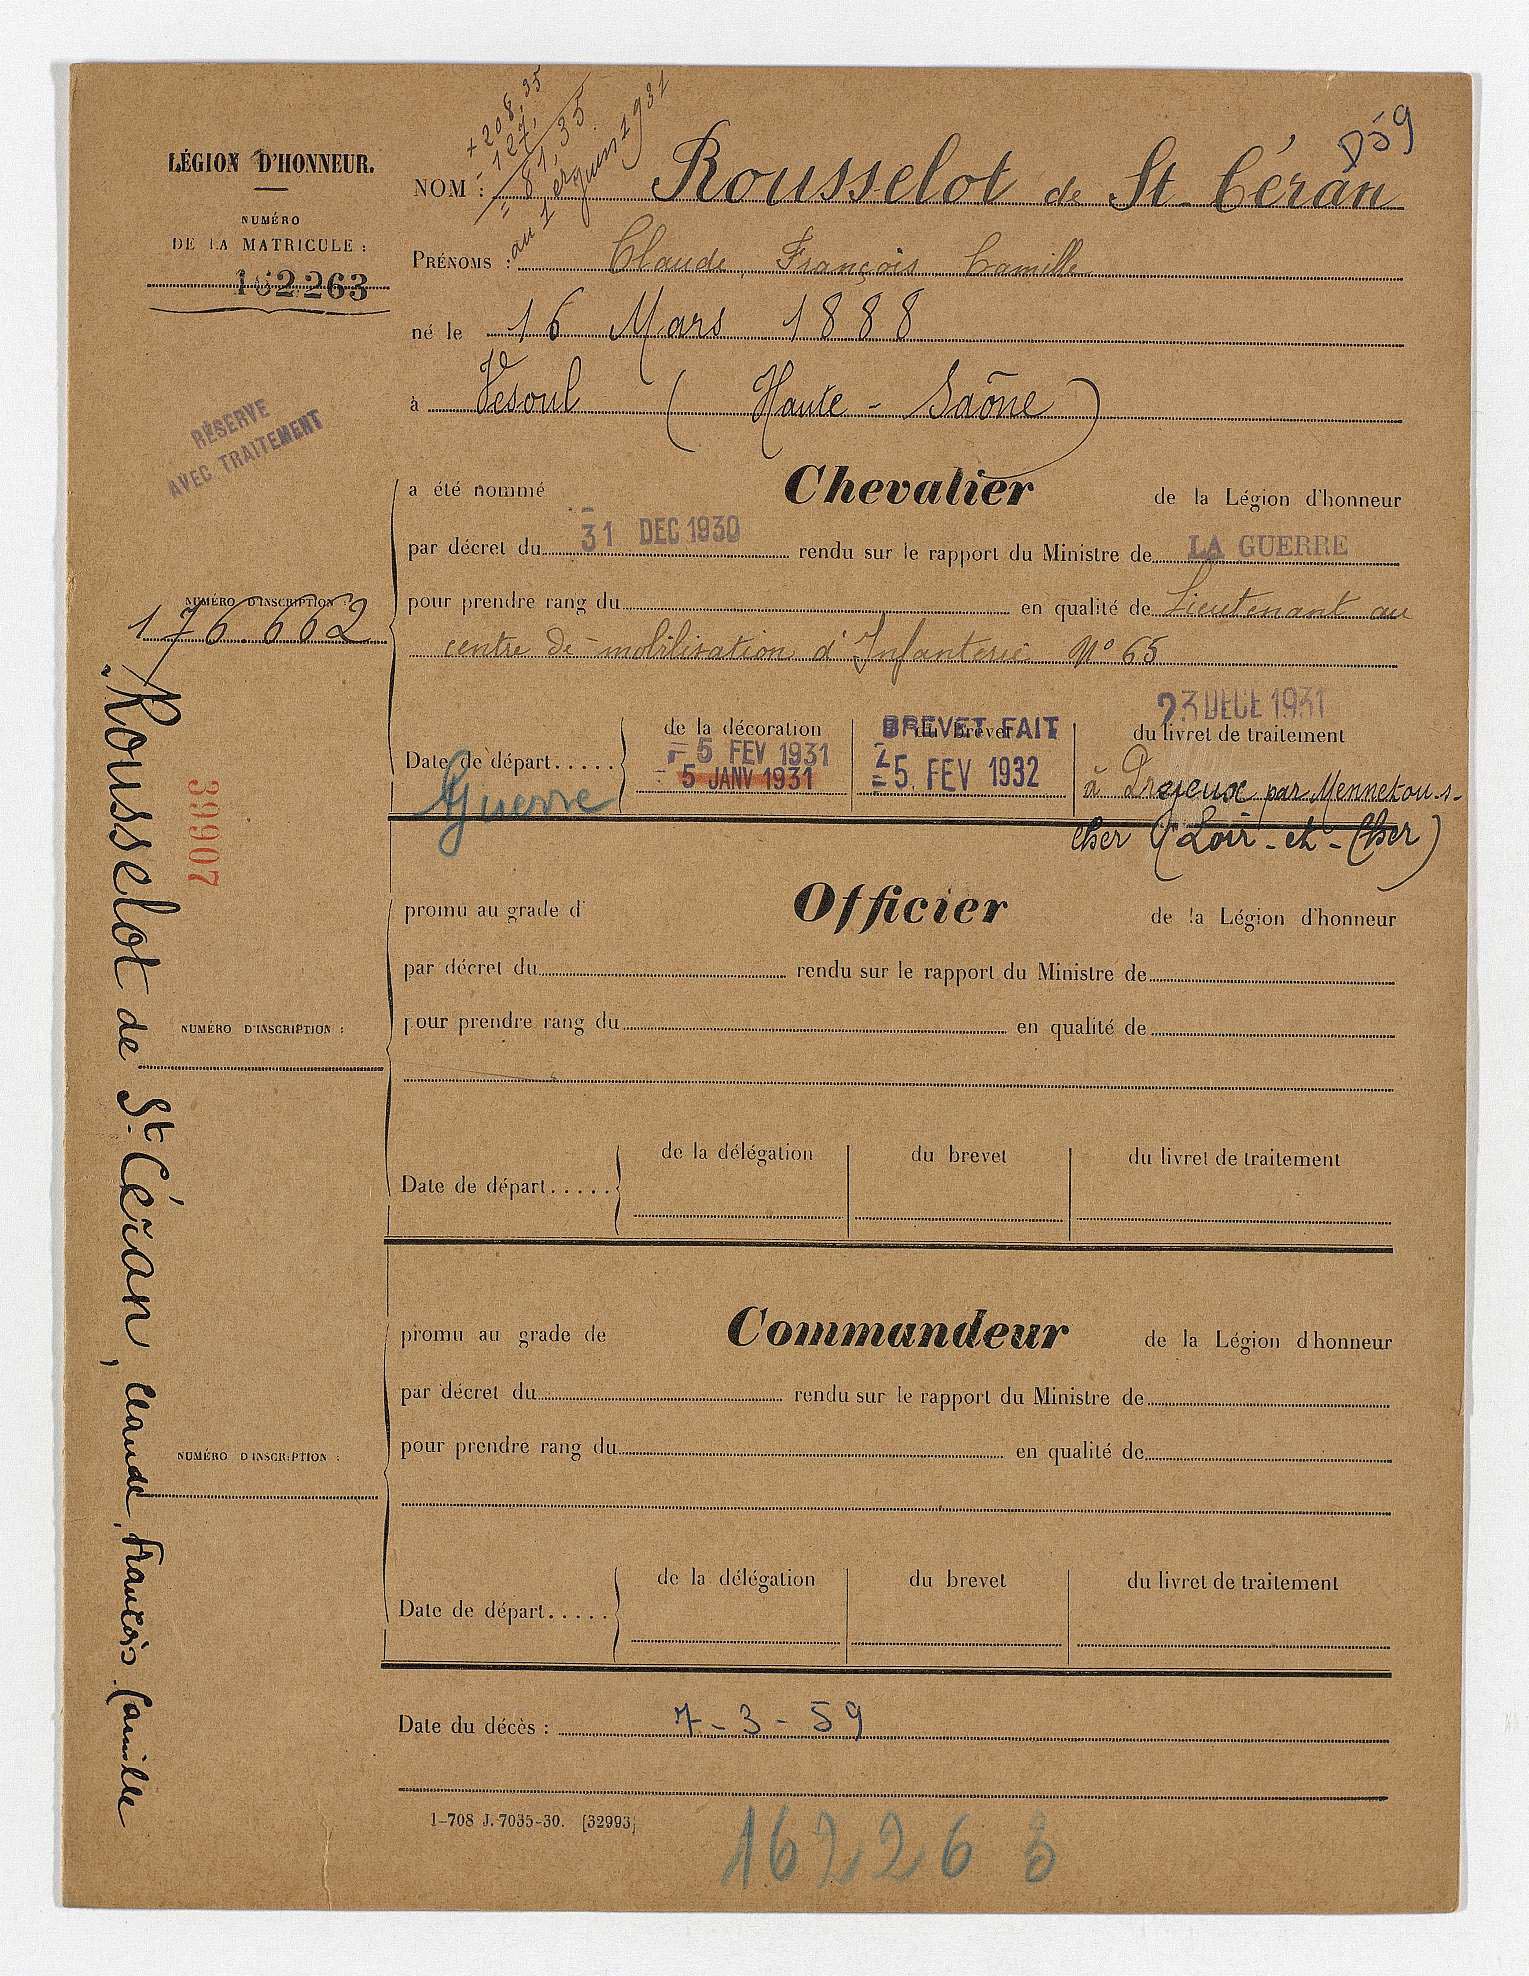 D59
+ 208,35
- 127,
= 81,35
au 1er Juin 1931
LÉGION D'HONNEUR.
NUMÉRO
DE LA MATRICULE :
162263
NOM : Rousselot de St Céran
PRÉNOMS : Claude, François Camille
né le 16 Mars 1888
à Vesoul ( Haute-Saône )
RÉSERVE
AVEC TRAITEMENT
a été nommé Chevalier de la Légion d'honneur
par décret du 31 DEC 1930 rendu sur le rapport du Ministre de LA GUERRE
NUMÉRO D'INSCRIPTION :
176.662
pour prendre rang du en qualité de Lieutenant au
centre de mobilisation d'Infanterie No 65
Date de départ.....
de la décoration
= 5 FEV 1931
5 JANV 1931
du brevet
BREVET FAIT
25. FEV 1932
23 DECE 1931
du livret de traitement
à par Mennetou-s-
Cher (Loir-et-Cher)
Guerre
39907
Rousselot de St Céran, Claude, François Camille
promu au grade d' Officier de la Légion d'honneur
par décret du rendu sur le rapport du Ministre de
NUMÉRO D'INSCRIPTION :
pour prendre rang du en qualité de
Date de départ.....
de la délégation
du brevet
du livret de traitement
promu au grade de Commandeur de la Légion d'honneur
par décret du rendu sur le rapport du Ministre de
NUMÉRO D'INSCRIPTION :
pour prendre rang du en qualité de
Date de départ.....
de la délégation
du brevet
du livret de traitement
Date du décès : 7-3-59
1-708 J. 7035-30. [32993]
162263